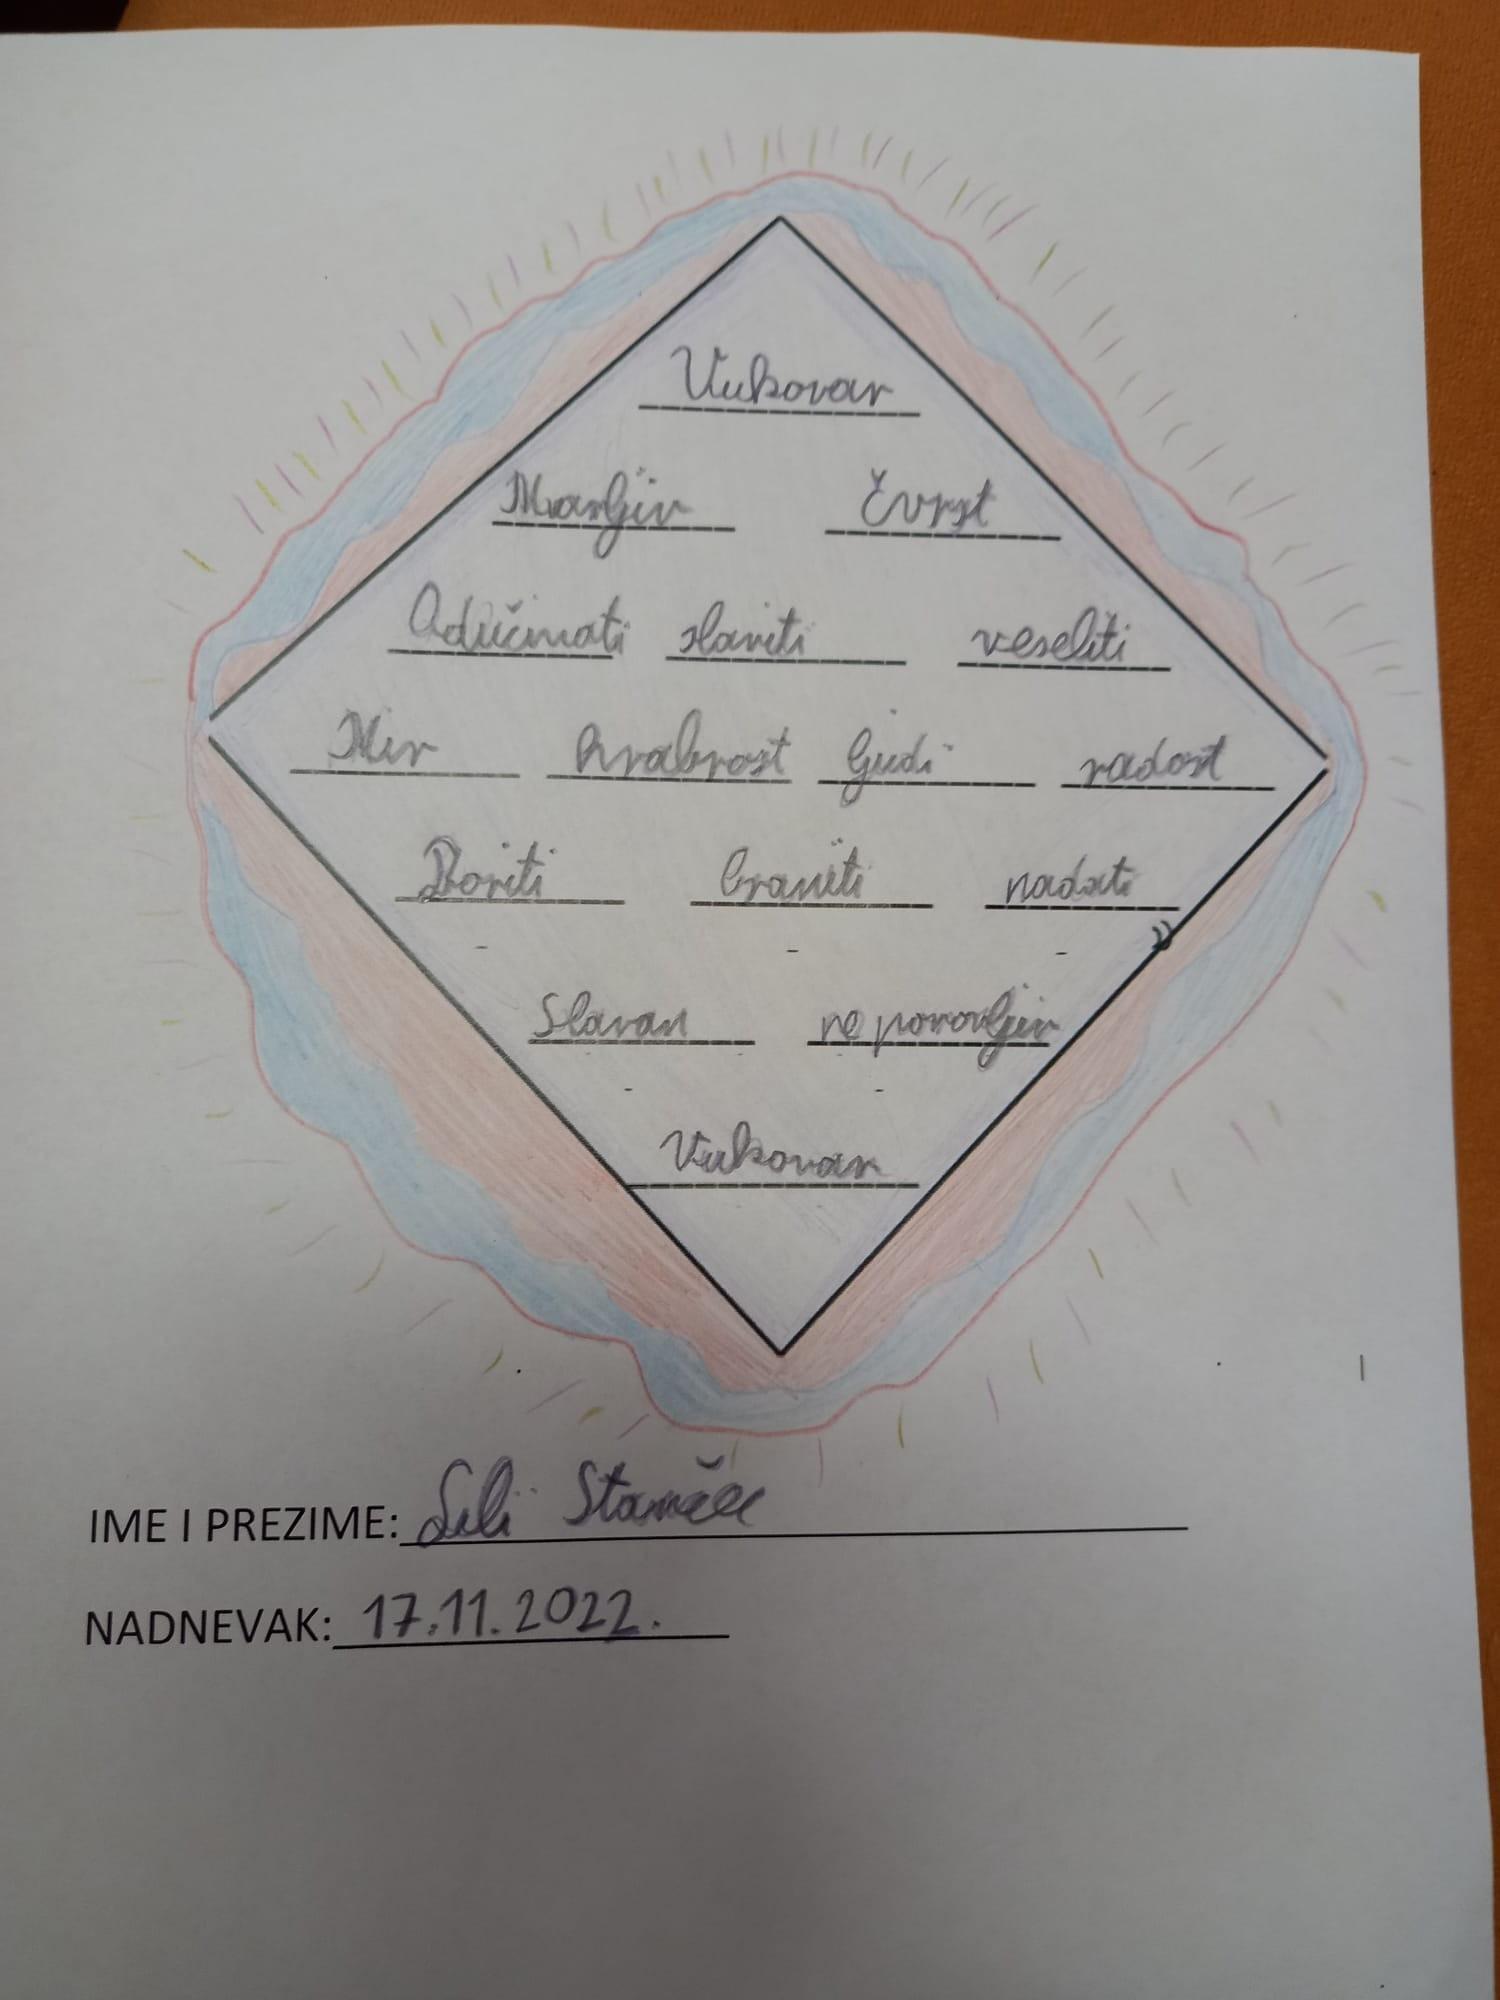 Vukovar
Marljiv Čvrst
Odučmati slaviti veseliti
Mir hrabrost ljudi radost
Boriti braniti nadati
Slavan ne porovljiv
Vukovar
IME I PREZIME: Lili
NADNEVAK: 17.11.2022.